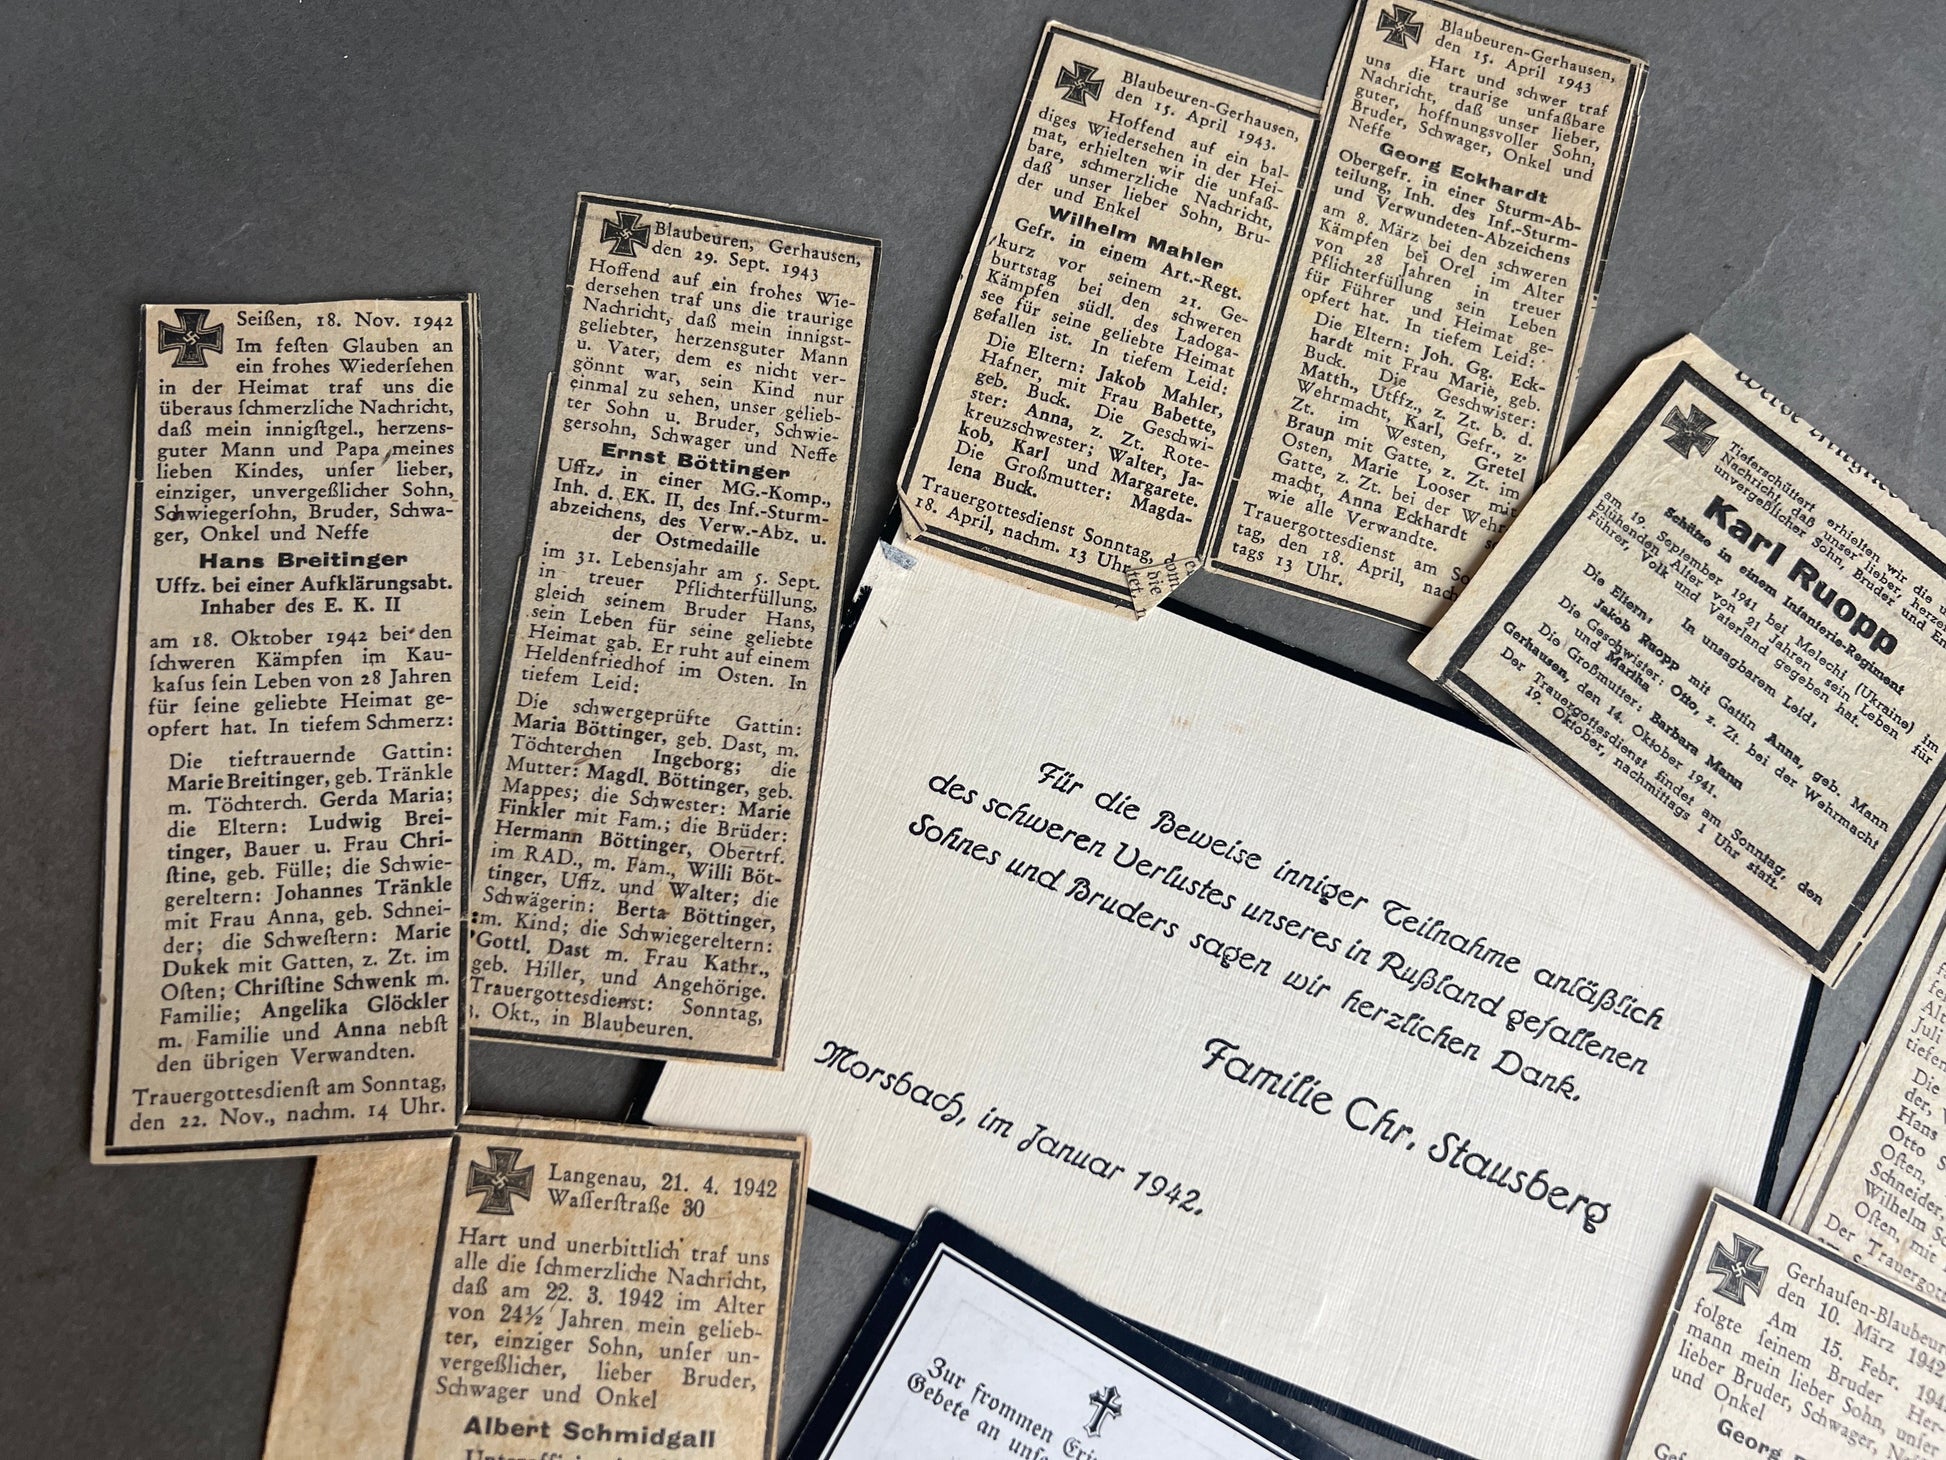 Seißen, 18. Nov. 1942
Im feſten Glauben an
ein frohes Wiederſehen
in der Heimat traf uns die
überaus ſchmerzliche Nachricht,
daß mein innigſtgel., herzens-
guter Mann und Papa meines
lieben Kindes, unſer lieber,
einziger, unvergeßlicher Sohn,
Schwiegerſohn, Bruder, Schwa-
ger, Onkel und Neffe
Hans Breitinger
Uffz. bei einer Aufklärungsabt.
Inhaber des E. K. II
am 18. Oktober 1942 bei den
ſchweren Kämpfen im Kau-
kaſus ſein Leben von 28 Jahren
für ſeine geliebte Heimat ge-
opfert hat. In tiefem Schmerz:
Die tieftrauernde Gattin:
Marie Breitinger, geb. Tränkle
m. Töchterch. Gerda Maria;
die Eltern: Ludwig Brei-
tinger, Bauer u. Frau Chri-
ſtine, geb. Fülle; die Schwie-
gereltern: Johannes Tränkle
mit Frau Anna, geb. Schnei-
der; die Schweſtern: Marie
Dukek mit Gatten, z. Zt. im
Oſten; Chriſtine Schwenk m.
Familie; Angelika Glöckler
m. Familie und Anna nebſt
den übrigen Verwandten.
Trauergottesdienſt am Sonntag,
den 22. Nov., nachm. 14 Uhr.
Blaubeuren, Gerhausen,
den 29. Sept. 1943
Hoffend auf ein frohes Wie-
dersehen traf uns die traurige
Nachricht, daß mein innigst-
geliebter, herzensguter Mann
u. Vater, dem es nicht ver-
gönnt war, sein Kind nur
einmal zu sehen, unser gelieb-
ter Sohn u. Bruder, Schwie-
gersohn, Schwager und Neffe
Ernst Böttinger
Uffz. in einer MG.-Komp.,
Inh. d. EK. II, des Inf.-Sturm-
abzeichens, des Verw.-Abz. u.
der Ostmedaille
im 31. Lebensjahr am 5. Sept.
in treuer Pflichterfüllung,
gleich seinem Bruder Hans,
sein Leben für seine geliebte
Heimat gab. Er ruht auf einem
Heldenfriedhof im Osten. In
tiefem Leid:
Die schwergeprüfte Gattin:
Maria Böttinger, geb. Dast, m.
Töchterchen Ingeborg; die
Mutter: Magdl. Böttinger, geb.
Mappes; die Schwester: Marie
Finkler mit Fam.; die Brüder:
Hermann Böttinger, Obertrf.
im RAD., m. Fam., Willi Böt-
tinger, Uffz. und Walter; die
Schwägerin: Berta Böttinger,
m. Kind; die Schwiegereltern:
Gottl. Dast m. Frau Kathr.,
geb. Hiller, und Angehörige.
Trauergottesdienst: Sonntag,
3. Okt., in Blaubeuren.
Blaubeuren-Gerhausen,
den 15. April 1943.
Hoffend auf ein bal-
diges Wiedersehen in der Hei-
mat, erhielten wir die unfaß-
bare, schmerzliche Nachricht,
daß unser lieber Sohn, Bru-
der und Enkel
Wilhelm Mahler
Gefr. in einem Art.-Regt.
kurz vor seinem 21. Ge-
burtstag bei den schweren
Kämpfen südl. des Ladoga-
see für seine geliebte Heimat
gefallen ist. In tiefem Leid:
Die Eltern: Jakob Mahler,
Hafner, mit Frau Babette,
geb. Buck. Die Geschwi-
ster: Anna, z. Zt. Rote-
kreuzschwester; Walter, Ja-
kob, Karl und Margarete.
Die Großmutter: Magda-
lena Buck.
Trauergottesdienst Sonntag,
18. April, nachm. 13 Uhr
Blaubeuren-Gerhausen,
den 15. April 1943
Hart und schwer traf
uns die traurige unfaßbare
Nachricht, daß unser lieber,
guter, hoffnungsvoller Sohn,
Bruder, Schwager, Onkel und
Neffe
Georg Eckhardt
Obergefr. in einer Sturm-Ab-
teilung, Inh. des Inf.-Sturm-
und Verwundeten-Abzeichens
am 8. März bei den schweren
Kämpfen bei Orel im Alter
von 28 Jahren in treuer
Pflichterfüllung sein Leben
für Führer und Heimat ge-
opfert hat. In tiefem Leid:
Die Eltern: Joh. Gg. Eck-
hardt mit Frau Marie, geb.
Buck. Die Geschwister:
Matth., Utffz., z. Zt. b. d.
Wehrmacht, Karl, Gefr., z.
Zt. im Westen, Gretel
Braun mit Gatte, z. Zt. im
Osten, Marie Looser mit
Gatte, z. Zt. bei der Wehr-
macht, Anna Eckhardt
wie alle Verwandte.
Trauergottesdienst am
tag, den 18. April, nach
tags 13 Uhr.
Tieferschüttert erhielten wir die
Nachricht, daß unser lieber,
unvergeßlicher Sohn, Bruder und
Karl Ruopp
Schütze in einem Infanterie-Regiment
am 19. September 1941 bei Melechi (Ukraine) im
blühenden Alter von 21 Jahren sein Leben für
Führer, Volk und Vaterland gegeben hat.
In unsagbarem Leid:
Die Eltern:
Jakob Ruopp mit Gattin Anna, geb. Mann
Die Geschwister: Otto, z. Zt. bei der Wehrmacht
und Martha
Die Großmutter: Barbara Mann
Gerhausen, den 14. Oktober 1941.
Der Trauergottesdienst findet am Sonntag, den
19. Oktober, nachmittags 1 Uhr statt.
Für die Beweise inniger Teilnahme anläßlich
des schweren Verlustes unseres in Rußland gefallenen
Sohnes und Bruders sagen wir herzlichen Dank.
Familie Chr. Stausberg
Morsbach, im Januar 1942.
Langenau, 21. 4. 1942
Waſſerſtraße 30
Hart und unerbittlich traf uns
alle die ſchmerzliche Nachricht,
daß am 22. 3. 1942 im Alter
von 24½ Jahren mein gelieb-
ter, einziger Sohn, unſer un-
vergeßlicher, lieber Bruder,
Schwager und Onkel
Albert Schmidgall
Zur frommen
Gebete an
Juli
tiefem
Die
der,
Hans
Otto
Oſten,
Schneider,
Wilhelm
Oſten, mit
Der
Gerhauſen-Blaubeuren
den 10. März 1942
Am 15. Febr.
folgte ſeinem Bruder Her-
mann mein lieber Sohn, unſer
lieber Bruder, Schwager,
und Onkel
Georg